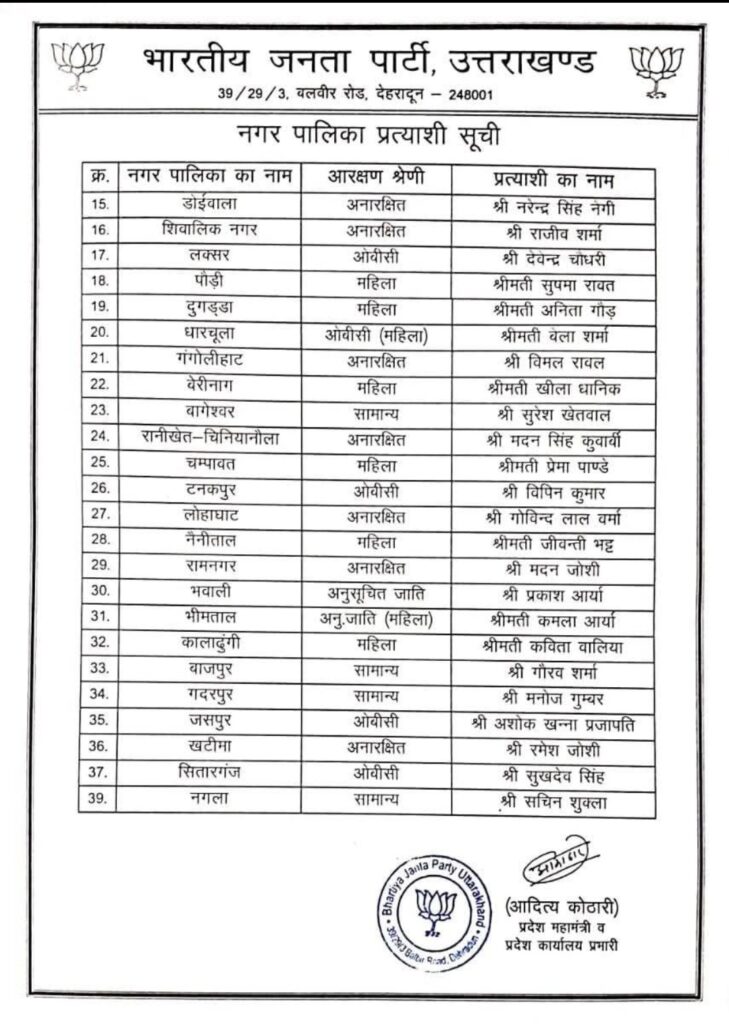 भारतीय जनता पार्टी, उत्तराखण्ड
39/29/3, बलवीर रोड, देहरादून – 248001
नगर पालिका प्रत्याशी सूची
क्र. नगर पालिका का नाम आरक्षण श्रेणी प्रत्याशी का नाम
15. डोईवाला अनारक्षित श्री नरेन्द्र सिंह नेगी
16. शिवालिक नगर अनारक्षित श्री राजीव शर्मा
17. लक्सर ओबीसी श्री देवेन्द्र चौधरी
18. पौड़ी महिला श्रीमती सुषमा रावत
19. दुगड्डा महिला श्रीमती अनिता गौड़
20. धारचूला ओबीसी (महिला) श्रीमती बेला शर्मा
21. गंगोलीहाट अनारक्षित श्री विमल रावल
22. बेरीनाग महिला श्रीमती खीला धानिक
23. बागेश्वर सामान्य श्री सुरेश खेतवाल
24. रानीखेत–चिनियानौला अनारक्षित श्री मदन सिंह कुवार्बी
25. चम्पावत महिला श्रीमती प्रेमा पाण्डे
26. टनकपुर ओबीसी श्री विपिन कुमार
27. लोहाघाट अनारक्षित श्री गोविन्द लाल वर्मा
28. नैनीताल महिला श्रीमती जीवन्ती भट्ट
29. रामनगर अनारक्षित श्री मदन जोशी
30. भवाली अनुसूचित जाति श्री प्रकाश आर्या
31. भीमताल अनु.जाति (महिला) श्रीमती कमला आर्या
32. कालाढुंगी महिला श्रीमती कविता वालिया
33. बाजपुर सामान्य श्री गौरव शर्मा
34. गदरपुर सामान्य श्री मनोज गुम्बर
35. जसपुर ओबीसी श्री अशोक खन्ना प्रजापति
36. खटीमा अनारक्षित श्री रमेश जोशी
37. सितारगंज ओबीसी श्री सुखदेव सिंह
39. नगला सामान्य श्री सचिन शुक्ला
Bhartiya Janta Party Uttarakhand
39/29/3 Balbir Road, Dehradun
(आदित्य कोठारी)
प्रदेश महामंत्री व
प्रदेश कार्यालय प्रभारी